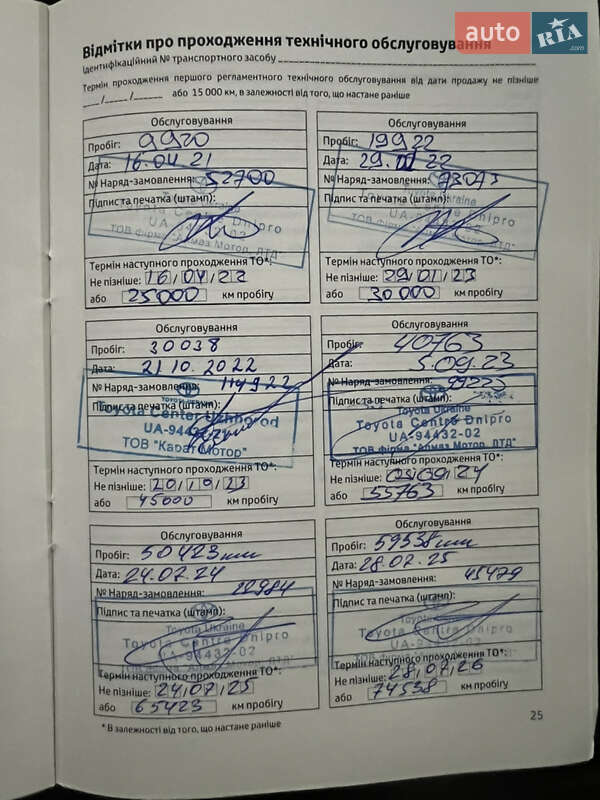 auto RIA.com
Відмітки про проходження технічного обслуговування
Ідентифікаційний № транспортного засобу
Термін проходження першого регламентного технічного обслуговування від дати продажу не пізніше
___/____/_____ або 15 000 км, в залежності від того, що настане раніше
Обслуговування
Пробіг: 9920
Дата: 16.04.21
№ Наряд-замовлення: 52700
Підпис та печатка (штамп):
Toyota Ukraine
Toyota Centre Dnipro
UA-94432-02
ТОВ фірма "Алмаз Мотор, ЛТД"
Термін наступного проходження ТО*:
Не пізніше: 16/04/22
або 25000 км пробігу
Обслуговування
Пробіг: 19922
Дата: 29.01.22
№ Наряд-замовлення: 73073
Підпис та печатка (штамп):
Toyota Ukraine
Toyota Centre Dnipro
UA-94432-02
ТОВ фірма "Алмаз Мотор, ЛТД"
Термін наступного проходження ТО*:
Не пізніше: 29/01/23
або 30000 км пробігу
Обслуговування
Пробіг: 30038
Дата: 21.10.2022
№ Наряд-замовлення: 114922
Підпис та печатка (штамп):
Toyota Center Uzhhorod
ТОВ "Карат Мотор"
Термін наступного проходження ТО*:
Не пізніше: 20/10/23
або 45000 км пробігу
Обслуговування
Пробіг: 40763
Дата: 5.09.23
№ Наряд-замовлення:
Підпис та печатка (штамп):
Toyota Ukraine
Toyota Centre Dnipro
UA-94432-02
ТОВ фірма "Алмаз Мотор, ЛТД"
Термін наступного проходження ТО*:
Не пізніше: 05/09/24
або 55763 км пробігу
Обслуговування
Пробіг: 50423 км
Дата: 24.07.24
№ Наряд-замовлення: 22984
Підпис та печатка (штамп):
Toyota Ukraine
Toyota Centre Dnipro
UA-94432-02
Термін наступного проходження ТО*:
Не пізніше: 24/07/25
або 65423 км пробігу
Обслуговування
Пробіг: 59538 км
Дата: 28.07.25
№ Наряд-замовлення: 45479
Підпис та печатка (штамп):
Toyota Ukraine
Toyota Centre Dnipro
UA-94432-02
Термін наступного проходження ТО*:
Не пізніше: 28/07/26
або 74538 км пробігу
* В залежності від того, що настане раніше
25